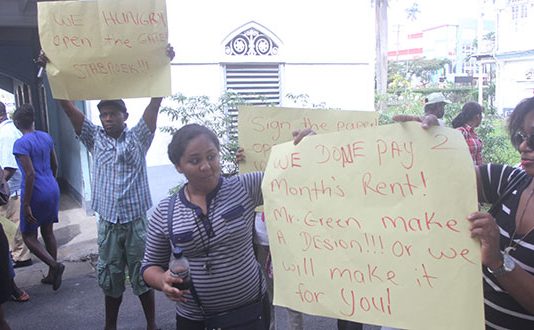 WE HUNGRY
open the GATE
STABROEK!!!
Sign the paper
WE DONE PAY 2
Month's Rent!
Mr. Green make
A DESION!!! Or we
will make it
for You!